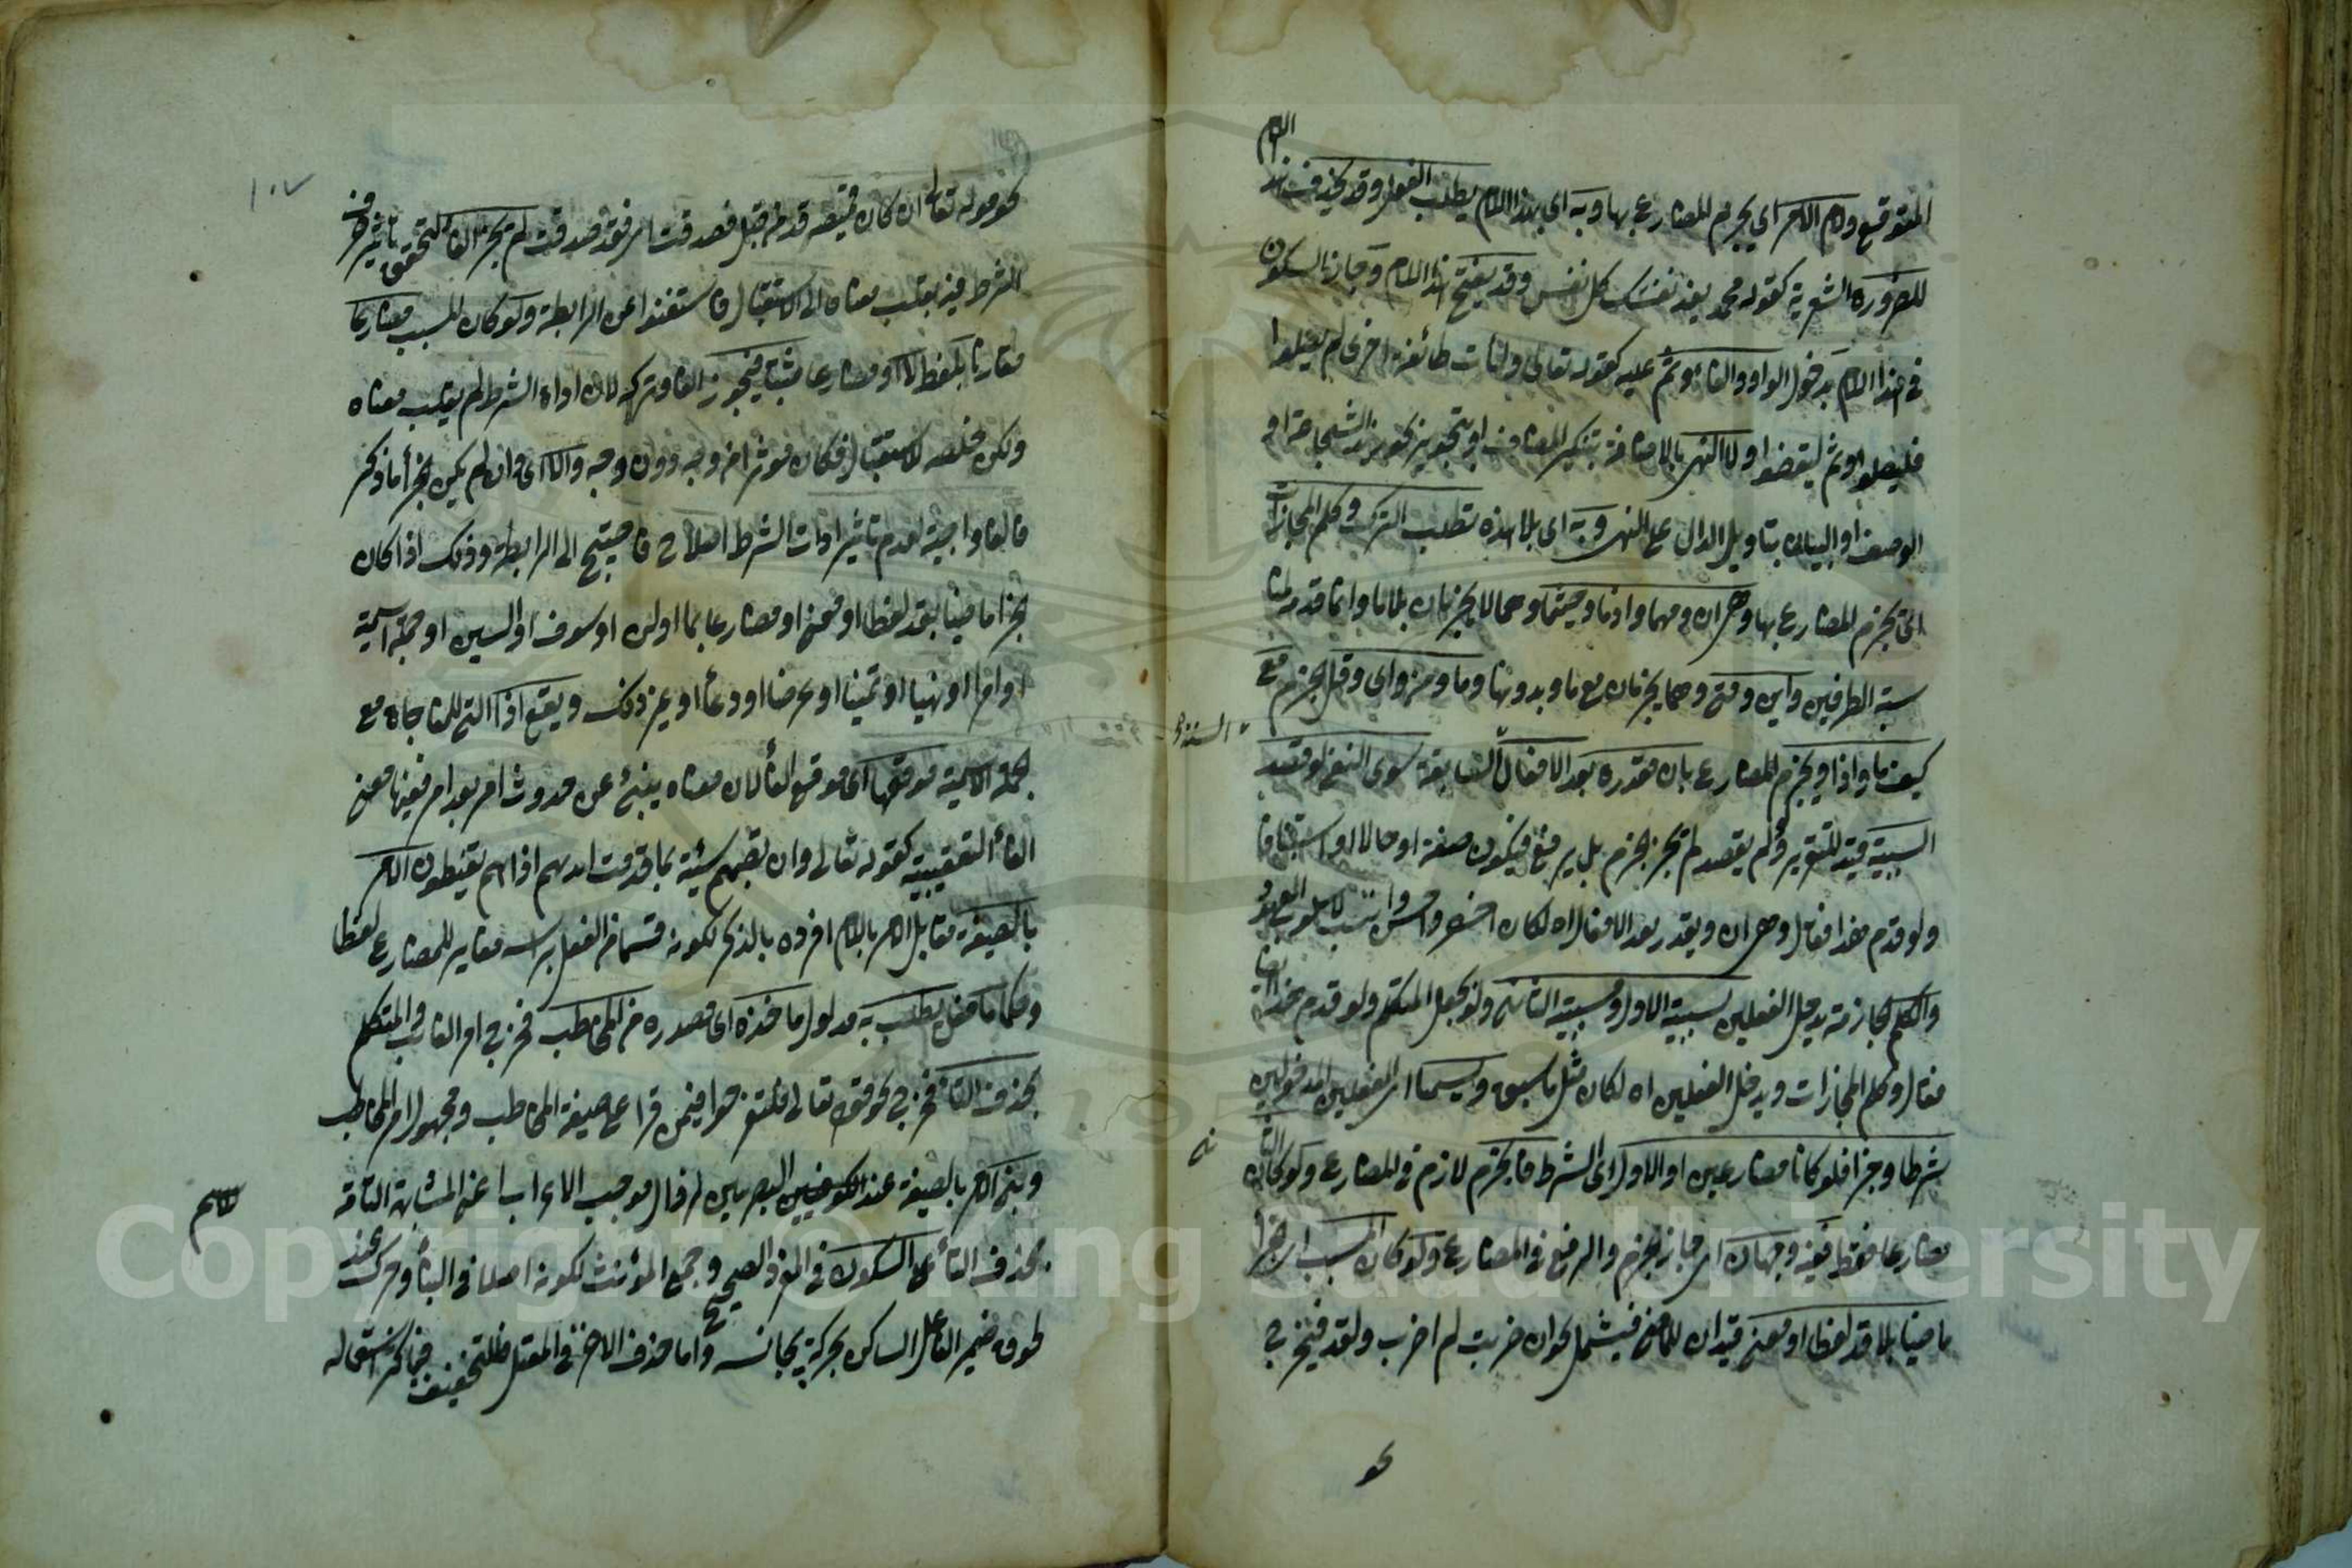 اللام
المتوقع ولام الامر اي يجزم المضارع بها وبه اى بهذا اللام يطلب الفعل وقد يحذف هذا
للضرورة الشعرية كقوله محمد تفد نفسك كل نفس وقد يفتح هذا اللام وجاز السكون
فى هذا اللام بدخول الواو والفاء وثم عليه كقوله تعالى ولتأت طائفة اخرى لم يصلوا
فليصلوا وثم ليقضوا ولا النهى بالاضافة بتنكير المضاف او بتجويز نحو زيد الشجاعة او
الوصف او البيان بتاويل الدال على النهى وبه اى بلا هذه تطلب الترك وكلم المجازات
اى تجزم المضارع بها وهى ان ومهما واذما وحيثما وهما لا يجزمان بلا ما وانما قدم لمنا
سبة الطرفين واين ومتى وهما يجزمان مع ما وبدونها وما ومن واى وقل الجزم مع
كيف ما واذا ويجزم المضارع بان مقدرة بعد الافعال السابقة سوى النفى لو قصد
السببية قيد للتقدير ولم يقصد لم يجز الجزم بل يرفع فيكون صفة او حالا او استينافا
ولو قدم هذا فقال وهى ان ويقدر بعد الافعال اه لكان اخصر واحسن وانسب لاسلوب المعهود
والكلم الجازمة يدخل الفعلين لسببية الاول ومسببية الثانى ولو بجعل المتكلم ولو قدم هذا ايضا
فقال وكلم المجازات ويدخل الفعلين اه لكان مثل ما سبق ويسمى اى الفعلين المدخولين
شرطا وجزا فلو كانا مضارعين او الاول اى الشرط فالجزم لازم فى المضارع ولو كان الثانى
مضارعا فقط ففيه وجهان اى جاز الجزم والرفع فى المضارع ولو كان المسبب اى الجزا
ماضيا بلا قد لفظا او معنى قيدان للماضى فيشمل نحو ان ضربت لم اضرب ولقد فيخرج
نحو
١٠٧
نحو قوله تعالى ان كان قميصه قد من قبل فصدقت اى فقد صدقت لم يجز الفاء لتحقق تأثير حرف
الشرط فيه بقلب معناه الى الاستقبال فاستغنوا عن الرابطة ولو كان المسبب مضارعا
مقارنا بلفظ لا او مضارعا مثبتا فيجوز الفاء وتركه لان اداة الشرط لم يقلب معناه
ولكن خلصه للاستقبال فكان مؤثرا من وجه دون وجه والا اى وان لم يكن الجزأ ما ذكر
فالفاء واجبة لعدم تأثير ادات الشرط اصلا فاحتيج الى الرابطة وذلك اذا كان
الجزا ماضيا بقد لفظا او معنى او مضارعا بما او لن او سوف او السين او جملة اسمية
او امرا او نهيا او تمنيا او عرضا او دعأ او غير ذلك ويقع اذا التى للمفاجاة مع
الجملة الاسمية موقعها اى موقع الفأ لان معناه ينبئ عن حدوث امر بعد امر ففيها معنى
الفأ التعقيبية كقوله تعالى وان تصبهم سيئة بما قدمت ايديهم اذا هم يقنطون الامر
بالصيغة مقابل الامر باللام افرده بالذكر لكونه قسما من الفعل براسه مغاير للمضارع لفظا
وحكما ما فعل يطلب به مدلول ماخذه اى مصدره من المخاطب فخرج امر الغائب والمتكلم
بحذف التاء فخرج نحو قوله تعالى فلتفرحوا فيمن قرا على صيغة المخاطب ومجهول امر المخاطب
وبنى الامر بالصيغة عند الكوفيين البصريين لزوال موجب الاعراب اعنى المشابهة التامة
بحذف التأ على السكون فى المفرد الصحيح وجمع المؤنث لكونه اصلا فى البنأ وحرك عند
لحوق ضمير الفاعل الساكن بحركة يجانسه واما حذف الاخر فى المعتل فللتخفيف فيما كثر استعماله